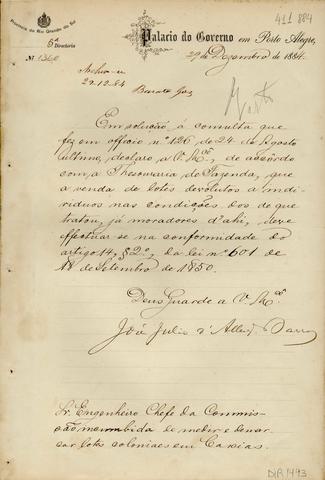 411 884
Provincia do Rio Grande do Sul
5ª
Directoria
Nº 1360
Palacio do Governo em Porto Alegre,
29 de Dezembro de 1884.
29.12.84
Em solução á consulta que
fez em officio nº 126 de 24 de Agosto
ultimo, declaro a V. Mcê, de accôrdo
com a Thesouraria de Fazenda, que
a venda de lotes devolutos a indi-
viduos nas condições dos de que
tratou, já moradores d'ahi, deve
effectuar se na conformidade do
artigo 14, § 2º, da lei nº 601 de
18 de Setembro de 1850.
Deus Guarde a V. Mcê
José Julio d'
Sr. Engenheiro Chefe da Commis-
são incumbida de medir e demar-
car lotes coloniaes em Caxias.
DIR 1443